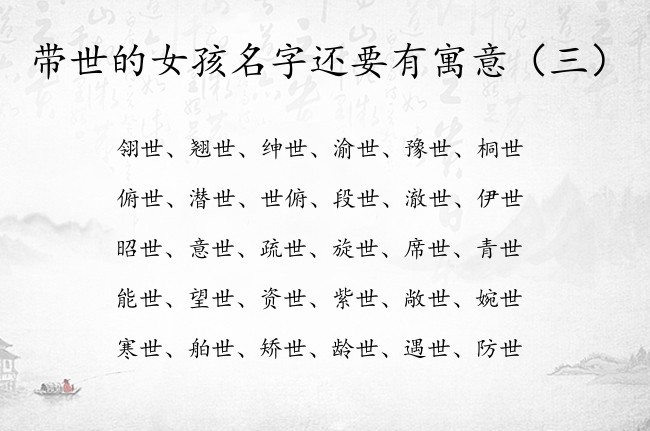 带世的女孩名字还要有寓意（三）
翎世、翘世、绅世、渝世、豫世、桐世
俯世、潜世、世俯、段世、澈世、伊世
昭世、意世、疏世、旋世、席世、青世
能世、望世、资世、紫世、敞世、婉世
寒世、舶世、矫世、龄世、遇世、防世